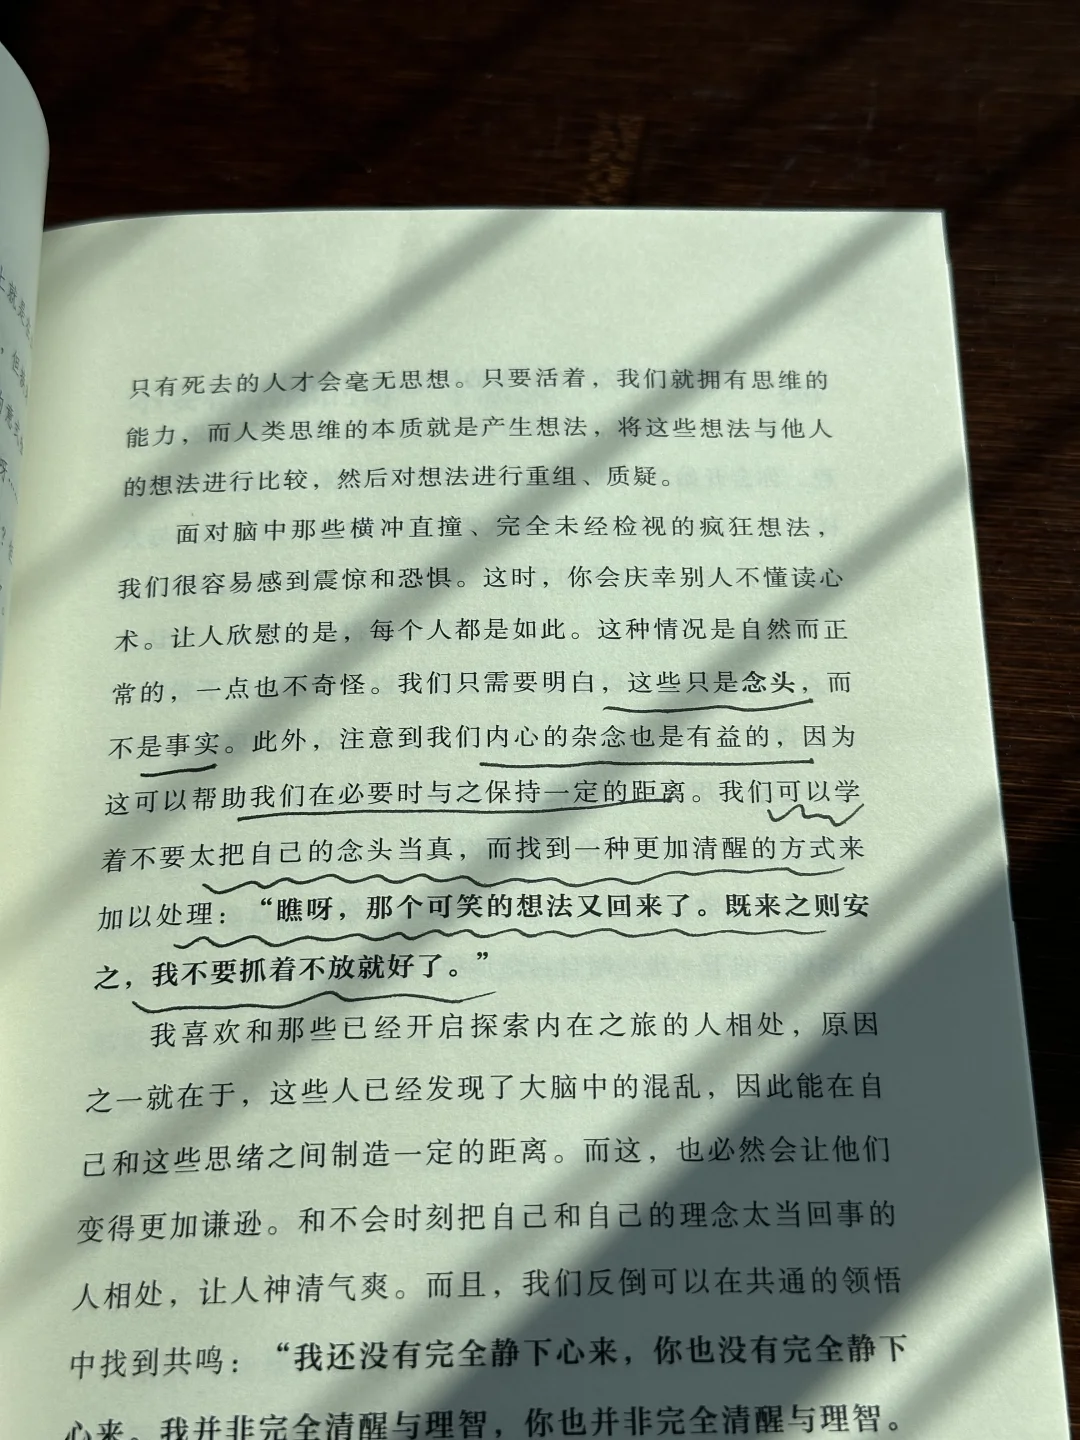 只有死去的人才会毫无思想。只要活着，我们就拥有思维的
能力，而人类思维的本质就是产生想法，将这些想法与他人
的想法进行比较，然后对想法进行重组、质疑。
面对脑中那些横冲直撞、完全未经检视的疯狂想法，
我们很容易感到震惊和恐惧。这时，你会庆幸别人不懂读心
术。让人欣慰的是，每个人都是如此。这种情况是自然而正
常的，一点也不奇怪。我们只需要明白，这些只是念头，而
不是事实。此外，注意到我们内心的杂念也是有益的，因为
这可以帮助我们在必要时与之保持一定的距离。我们可以学
着不要太把自己的念头当真，而找到一种更加清醒的方式来
加以处理：“瞧呀，那个可笑的想法又回来了。既来之则安
之，我不要抓着不放就好了。”
我喜欢和那些已经开启探索内在之旅的人相处，原因
之一就在于，这些人已经发现了大脑中的混乱，因此能在自
己和这些思绪之间制造一定的距离。而这，也必然会让他们
变得更加谦逊。和不会时刻把自己和自己的理念太当回事的
人相处，让人神清气爽。而且，我们反倒可以在共通的领悟
中找到共鸣：“我还没有完全静下心来，你也没有完全静下
心来。我并非完全清醒与理智，你也并非完全清醒与理智。